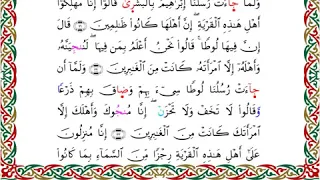 وَلَمَّا جَآءَتْ رُسُلُنَآ إِبْرَٰهِيمَ بِٱلْبُشْرَىٰ قَالُوٓا۟ إِنَّا مُهْلِكُوٓا۟
أَهْلِ هَٰذِهِ ٱلْقَرْيَةِ ۖ إِنَّ أَهْلَهَا كَانُوا۟ ظَٰلِمِينَ ٣١ قَالَ
إِنَّ فِيهَا لُوطًا ۚ قَالُوا۟ نَحْنُ أَعْلَمُ بِمَن فِيهَا ۖ لَنُنجِيَنَّهُۥ
وَأَهْلَهُۥٓ إِلَّا ٱمْرَأَتَهُۥ كَانَتْ مِنَ ٱلْغَٰبِرِينَ ٣٢ وَلَمَّآ أَن
جَآءَتْ رُسُلُنَا لُوطًا سِيٓءَ بِهِمْ وَضَاقَ بِهِمْ ذَرْعًا
وَقَالُوا۟ لَا تَخَفْ وَلَا تَحْزَنْ ۖ إِنَّا مُنجُوكَ وَأَهْلَكَ إِلَّا
ٱمْرَأَتَكَ كَانَتْ مِنَ ٱلْغَٰبِرِينَ ٣٣ إِنَّا مُنزِلُونَ
عَلَىٰٓ أَهْلِ هَٰذِهِ ٱلْقَرْيَةِ رِجْزًا مِّنَ ٱلسَّمَآءِ بِمَا كَانُوا۟